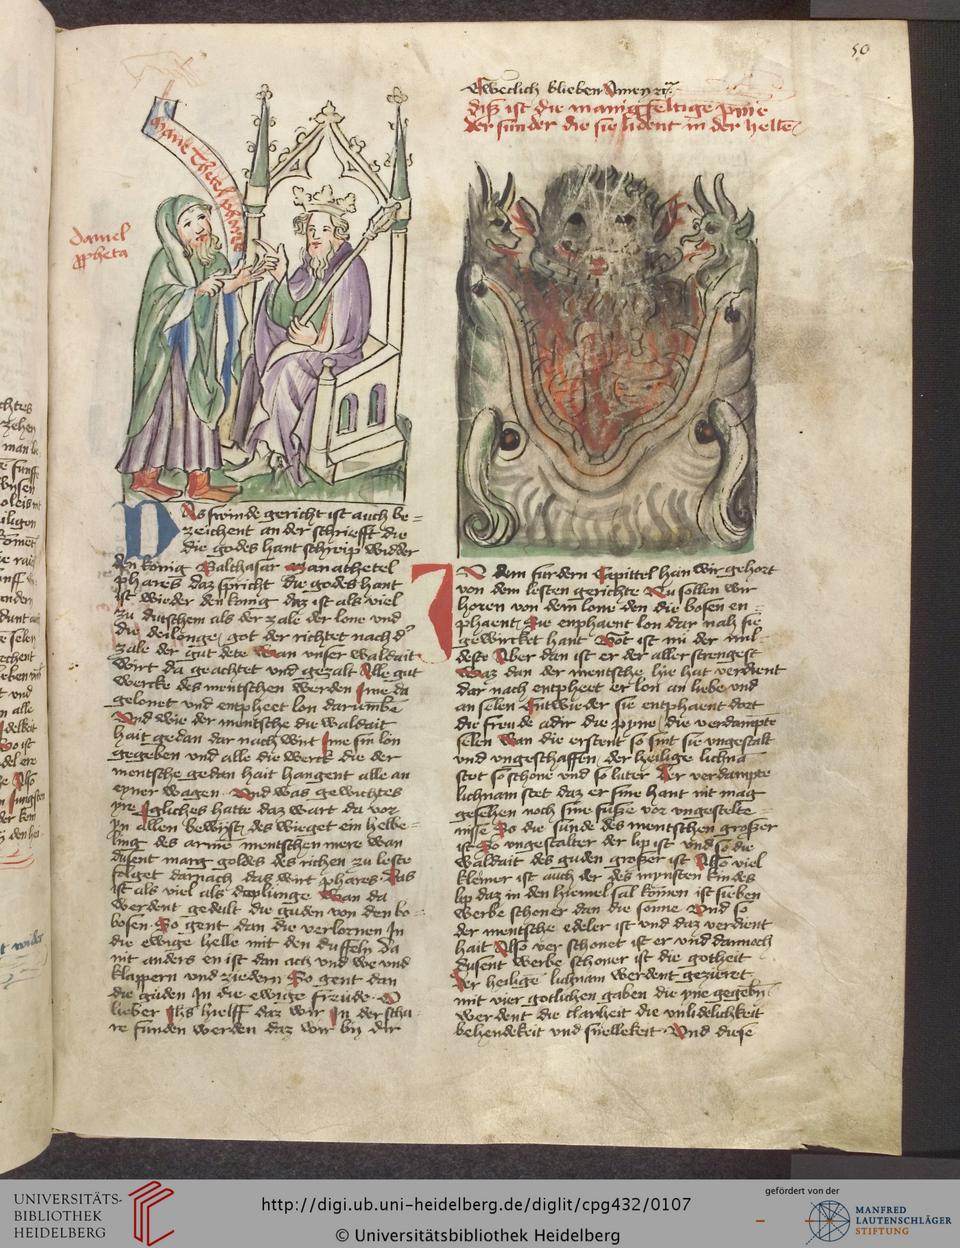 50
Mane Thetel phares
daniel
ppheta
Das swinde gericht ist auch be=
zeichent an der schriefft die
die godes hant schreip widder
den konig Balthasar Manathetel
phares daz spricht die godes hant
ist wieder den konig daz ist als viel
zu dutschem als der zale der lone und
die deilunge got der richtet nach d'
zale der gut dete Wan unser waldait
wirt da geachtet und gezalt Alle gut
wercke des mentschen werden Ime da
gelonet und entpheet lon darumbe
Und wie der mentsche die waldait
hait gedan dar nach wirt Ime sin lon
gegeben und alle die werck die der
mentsche gedan hait hangent alle an
eyner wagen Und was gewichtes
yre Igliches hatte daz wart da vor
yn allen bewijst des wieget ein helbe=
ling des arme mentschen mere wan
dusent marg goldes des richen zu leste
folget darnach das wirt phares Das
ist als viel als deylunge Wan da
werdent gedeilt die guden von den bo=
bosen So gent dan die verlornen In
die ewige helle mit den duffeln da
nit anders en ist dan ach und we und
klappern und ziedern So gent dan
die guden In die ewige freude O
lieber Ihs hielff daz wir In der scha
re funden werden daz wir by dir
Eweclich blieben Amen
Diß ist die manigfeltige pine
der sunder die sie lident in der hellen
In dem furdern Capittel han wir gehort
von dem lesten gerichte Nu sollen wir
horen von dem lone den die bosen en=
phaent Sie enphaent lon dar nach sie
gewircket hant Got ist nu der mil=
deste Aber dan ist er der aller strengest
Waz dan der mentsche hie hat verdient
dar nach entpheet er lon an liebe und
an selen Entwieder sie entphaent dort
die freude adir die pyne die verdampte
selen Wan die erstent so sint sie ungestalt
und ungeschaffen der heilige lichna
stet so schone und so luter Der verdampte
lichnam stet daz er sine hant nit mag
gesehen noch sine fusse vor ungestelte=
nisse So die sunde des mentschen grosser
ist So ungestalter der lip ist und so die
waldait des guden grosser ist Also viel
kleiner ist auch der des mynsten kindes
lip daz in den hiemel sal komen ist sieben
werbe schoner dan die sonne Und so
der mentsche edeler ist und daz verdient
hait Also ver schonet ist er und dannoch
dusent werbe schoner ist die gotheit
Der heilige lichnam werdent gezieret
mit vier gotlichen gaben die yne gegeben
werdent die clarheit die unlidelichkeit
behendekeit und snellekeit Und diese
UNIVERSITÄTS-
BIBLIOTHEK
HEIDELBERG
http://digi.ub.uni-heidelberg.de/diglit/cpg432/0107
© Universitätsbibliothek Heidelberg
gefördert von der
MANFRED
LAUTENSCHLÄGER
STIFTUNG